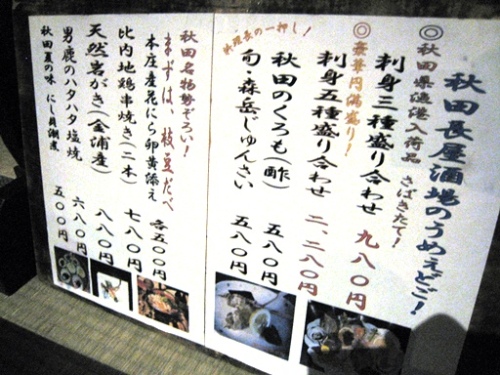 秋田長屋酒場のうめぇどご!
◎秋田県漁港入荷品 さばきたて!
刺身三種盛り合わせ 九八〇円
◎豪華円満盛り!
刺身五種盛り合わせ 二、二八〇円
料理長の一押し!
秋田のくろも(酢) 五八〇円
旬・森岳じゅんさい 五八〇円
秋田名物勢ぞろい!
まずは、枝豆たべ
本庄産花にら卵黄添え 各五〇〇円
比内地鶏串焼き(二本) 七八〇円
天然岩がき(金浦産) 八八〇円
男鹿のハタハタ塩焼 六八〇円
秋田夏の味 にし貝潮煮 五〇〇円